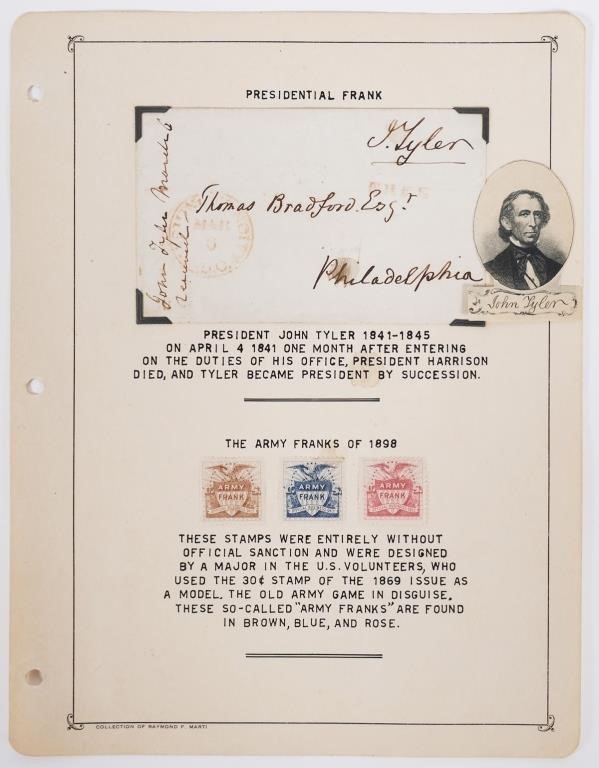 PRESIDENTIAL FRANK
J. Tyler
FREE
John Tyler March 6
Thomas Bradford Esqr
MAR
Philadelphia
John Tyler
PRESIDENT JOHN TYLER 1841-1845
ON APRIL 4 1841 ONE MONTH AFTER ENTERING
ON THE DUTIES OF HIS OFFICE, PRESIDENT HARRISON
DIED, AND TYLER BECAME PRESIDENT BY SUCCESSION.
THE ARMY FRANKS OF 1898
ARMY FRANK
ARMY FRANK
ARMY FRANK
THESE STAMPS WERE ENTIRELY WITHOUT
OFFICIAL SANCTION AND WERE DESIGNED
BY A MAJOR IN THE U.S. VOLUNTEERS, WHO
USED THE 30¢ STAMP OF THE 1869 ISSUE AS
A MODEL. THE OLD ARMY GAME IN DISGUISE.
THESE SO-CALLED "ARMY FRANKS" ARE FOUND
IN BROWN, BLUE, AND ROSE.
COLLECTION OF RAYMOND F. MARTI